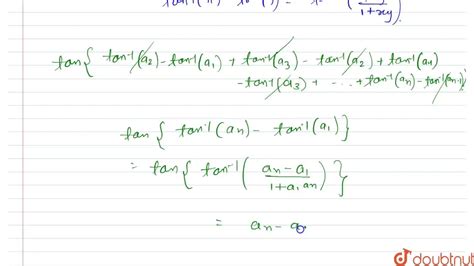 tan{ tan⁻¹(a₂) - tan⁻¹(a₁) + tan⁻¹(a₃) - tan⁻¹(a₂) + tan⁻¹(a₄)
- tan⁻¹(a₃) + - ... + tan⁻¹(aₙ) - tan⁻¹(aₙ₋₁)}
tan { tan⁻¹(aₙ) - tan⁻¹(a₁)}
= tan{ tan⁻¹( (aₙ - a₁)/(1 + a₁aₙ) )}
= aₙ - a
doubtnut